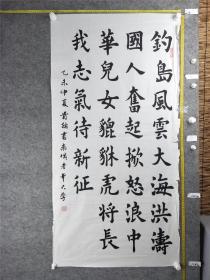 釣島風雲大海洪濤
國人奮起掀怒浪中
華兒女貔貅虎將長
我志氣待新征
乙未仲夏